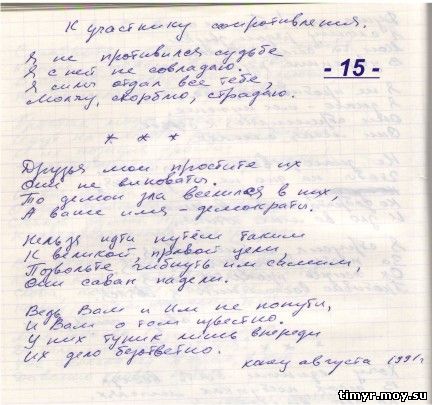 К участнику сопротивления.
Я не противился судьбе
Я с ней не совладаю.
Я силы отдал все тебе,
Молчу, скорблю, страдаю.
- 15 -
* * *
Друзья мои простите их
Они не виноваты.
То демон зла вселился в них,
А ваше имя - демократы.
Нельзя идти путём таким
К великой, правой цели
Позвольте гибнуть им самим,
Они саван надели.
Ведь Вам и Им не попути,
И Вам о том известно.
У них тупик лишь впереди
Их дело безответно.
конец августа 1991г.
timyr.moy.su